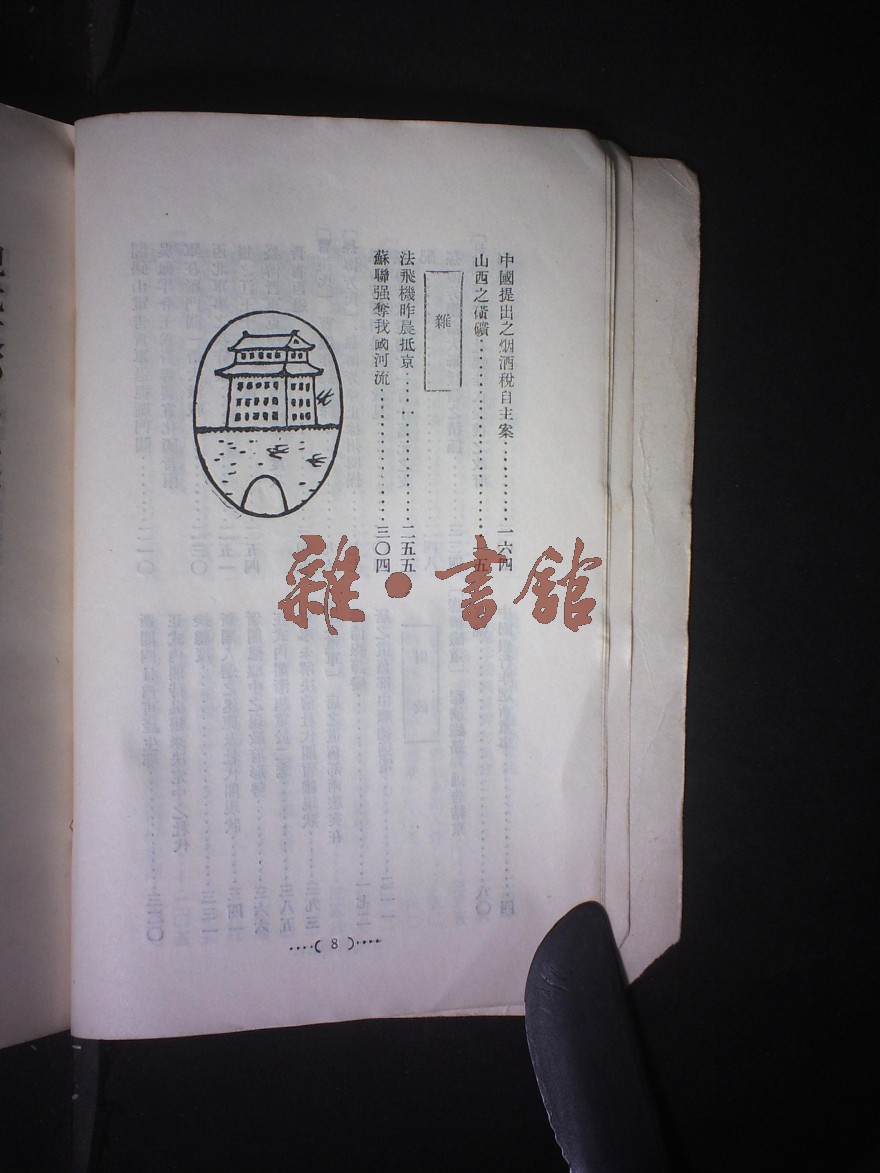 中國提出之烟酒稅自主案…………一六四
山西之礦………………五
雜
法飛機昨晨抵京………………二五五
蘇聯强奪我國河流………………三〇四
····( 8 )····
雜·書館